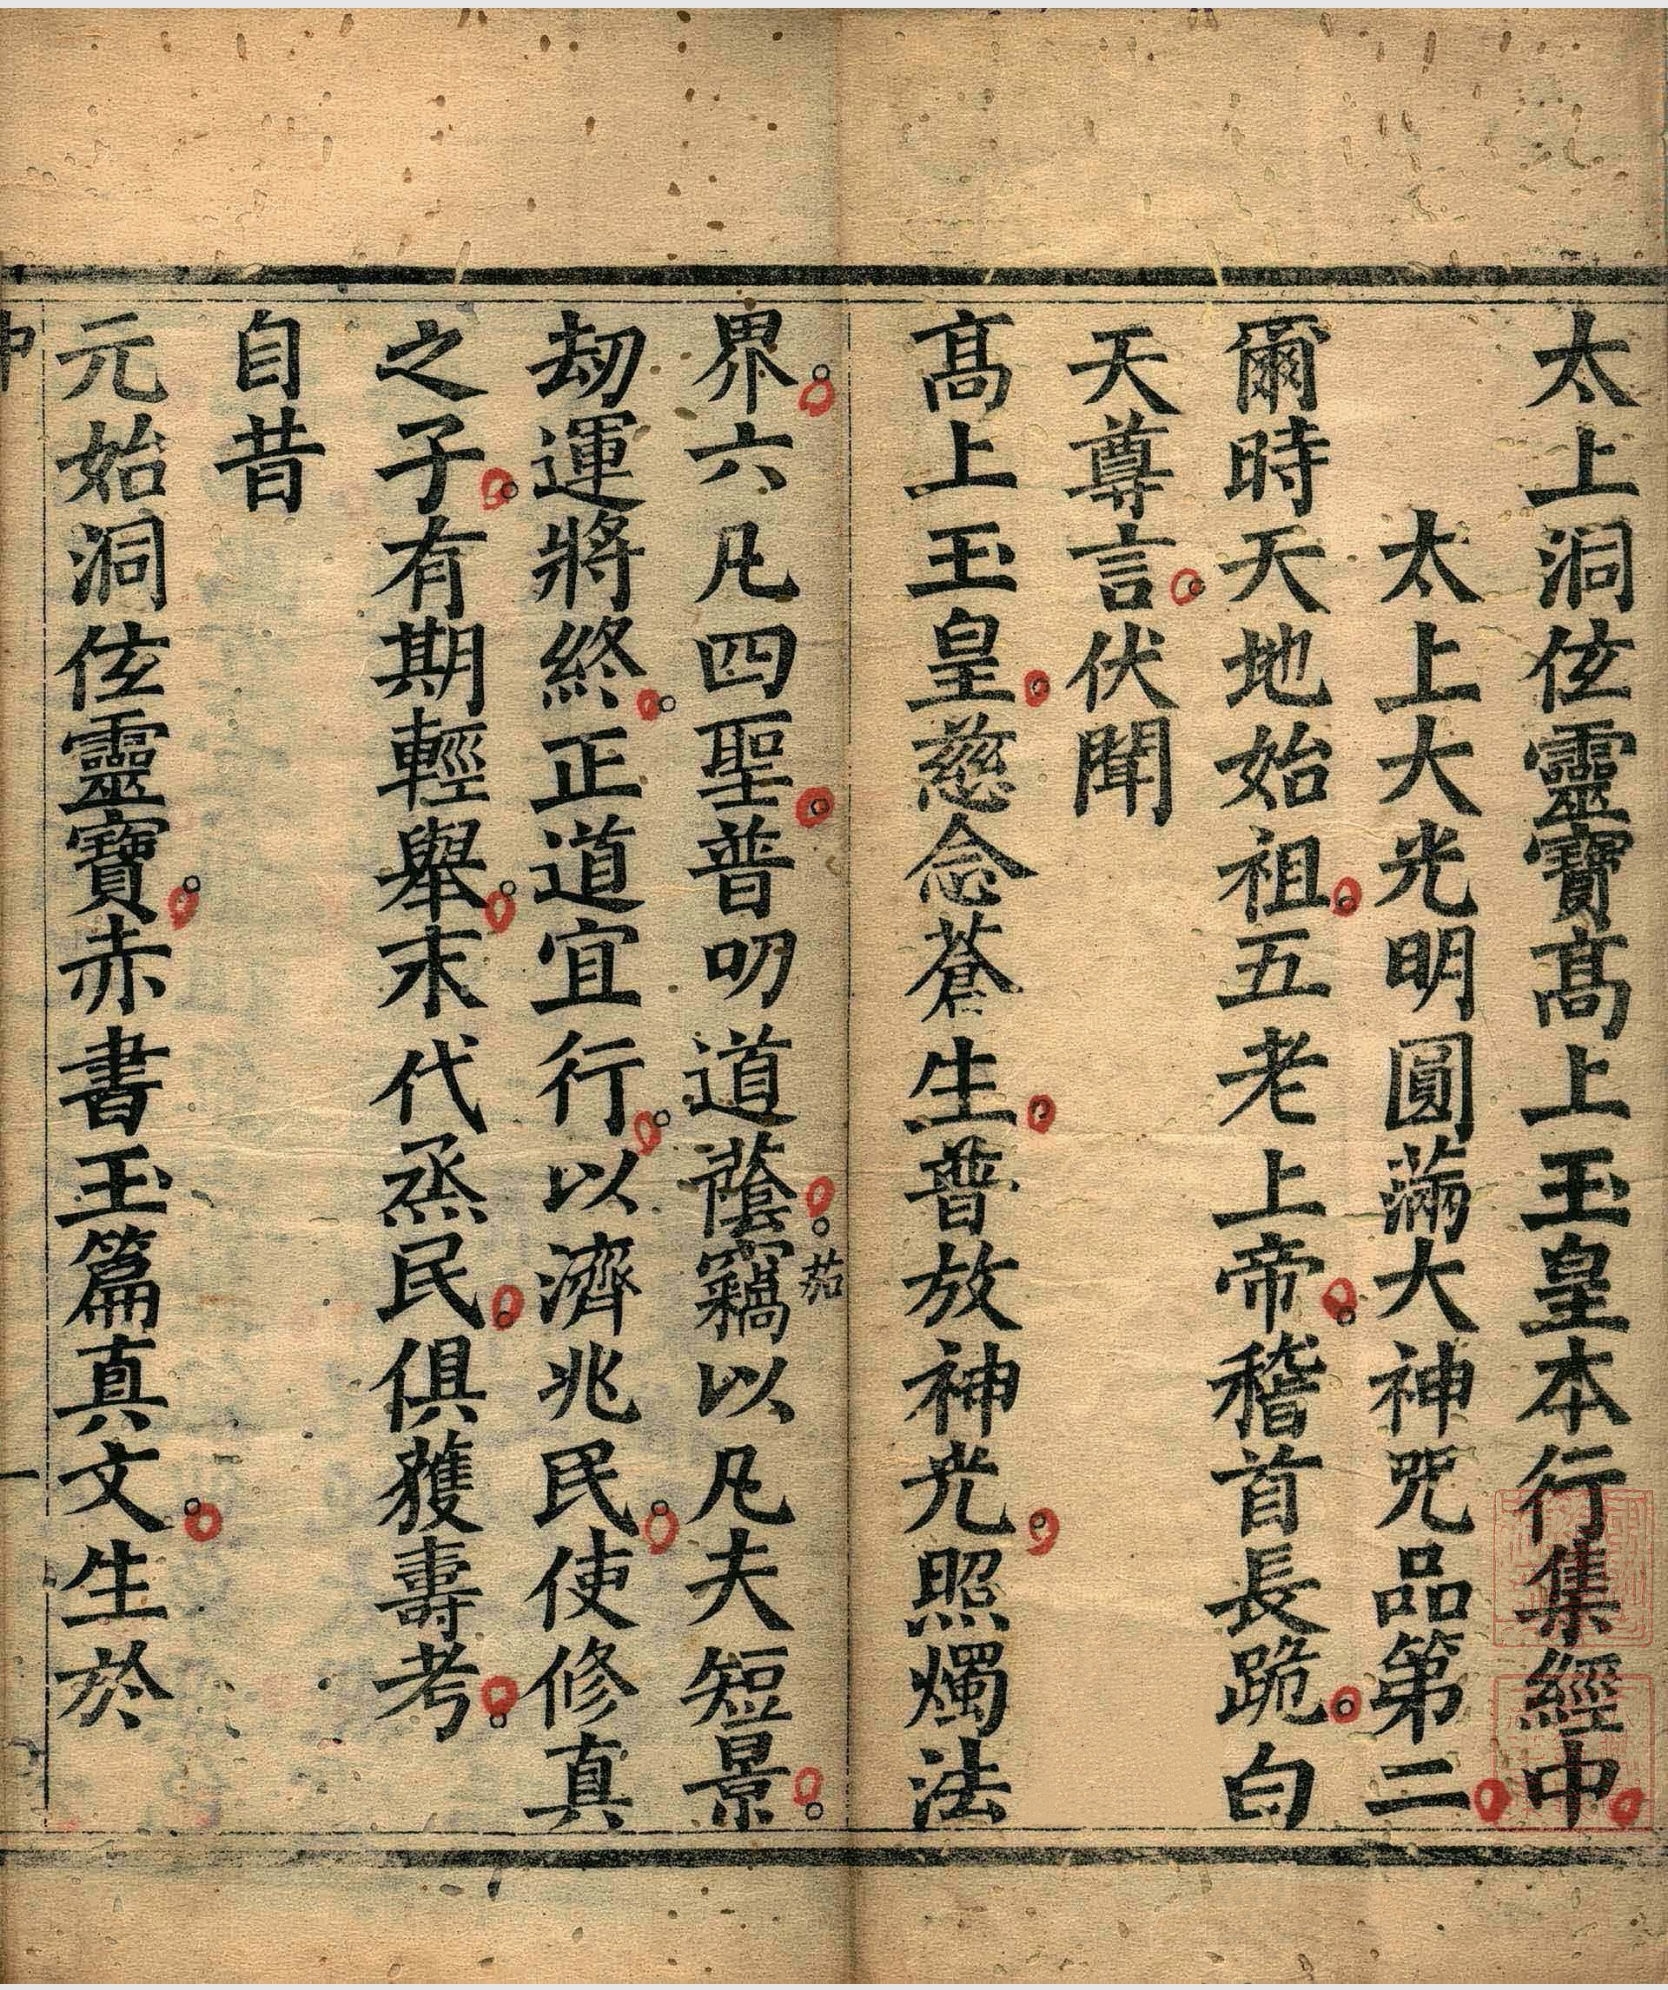 太上洞伭靈寶高上玉皇本行集經中
太上大光明圓滿大神咒品第二
爾時天地始祖五老上帝稽首長跪白
天尊言伏聞
髙上玉皇慈念蒼生普放神光照燭法
界六凡四聖普叨道蔭竊以凡夫短景
茄
劫運將終正道宜行以濟兆民使修真
之子有期輕舉末代烝民俱獲壽考
自昔
元始洞伭靈寶赤書玉篇真文生於
中
一